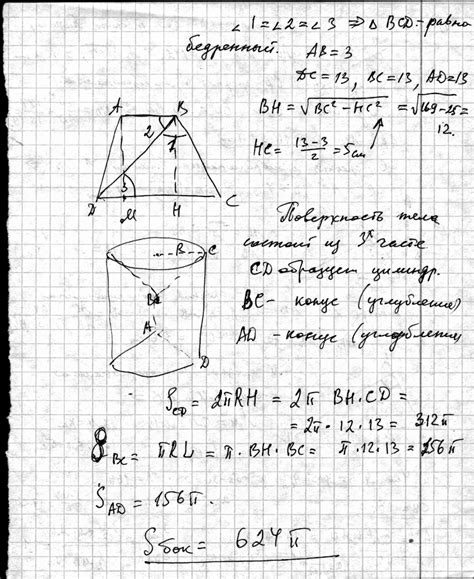 ∠1=∠2=∠3 ⇒ △ BCD - равно
бедренный.
AB = 3
DC = 13, BC = 13, AD = 13
BH = √(BC² - HC²) = √(169-25) =
12.
HC = (13-3)/2 = 5 см
A B
2
1
3
D M H C
Поверхность тела
состоит из 3х часте
CD образует цилиндр.
BC - конус (углубления)
AD - конус (углубления)
B C
B
A
D
S_CD = 2πRH = 2π BH·CD =
= 2π·12·13 = 312π
S_BC = πRL = π·BH·BC = π·12·13 = 156π
S_AD = 156π.
S_бок = 624π